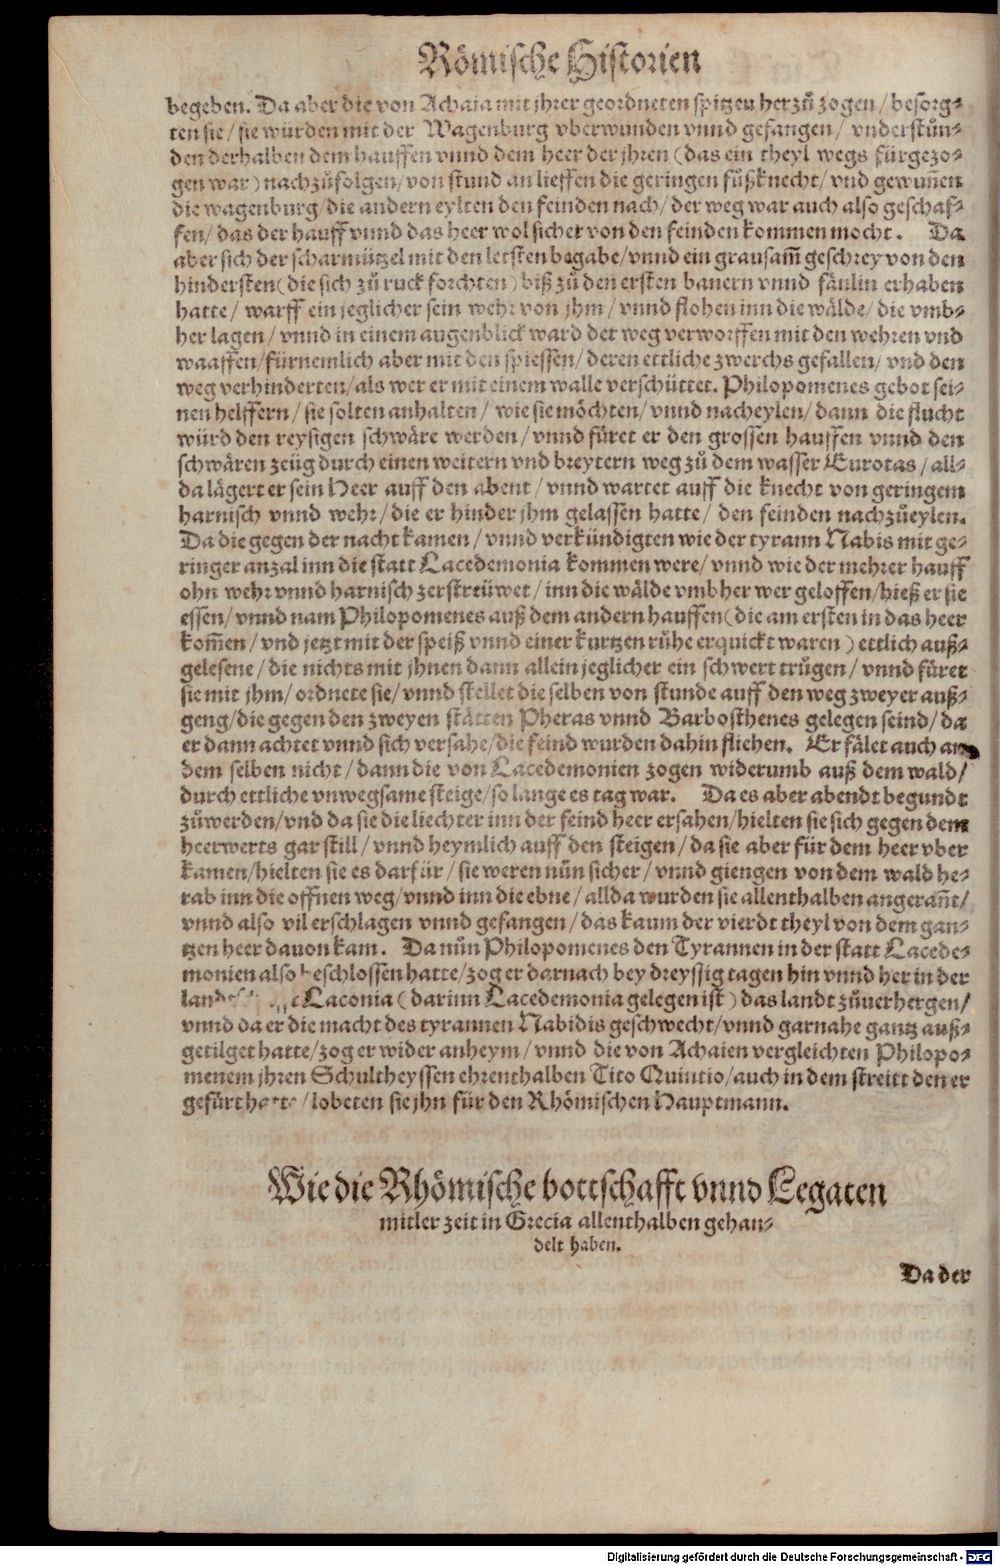 Römische Historien
begeben. Da aber die von Achaia mit jhrer geordneten spitzen herzů zogen / besorg⸗
ten sie / sie würden mit der Wagenburg vberwunden vnnd gefangen / vnderstůn⸗
den derhalben dem hauffen vnnd dem heer der jhren (das ein theyl wegs fürgezo⸗
gen war) nachzůfolgen / von stund an lieffen die geringen fůßknecht / vnd gewuñen
die wagenburg / die andern eylten den feinden nach / der weg war auch also geschaf⸗
fen / das der hauff vnnd das heer wol sicher von den feinden kommen mocht. Da
aber sich der scharmützel mit den letsten begabe / vnnd ein grausam̃ geschrey von den
hindersten (die sich zů ruck forchten) biß zů den ersten banern vnnd fänlin erhaben
hatte / warff ein jeglicher sein wehr von jhm / vnnd flohen inn die wälde / die vmb⸗
her lagen / vnnd in einem augenblick ward der weg verworffen mit den wehren vnd
waaffen / fürnemlich aber mit den spiessen / deren ettliche zwerchs gefallen / vnd den
weg verhinderten / als wer er mit einem walle verschüttet. Philopomenes gebot sei⸗
nen helffern / sie solten anhalten / wie sie möchten / vnnd nacheylen / dann die flucht
würd den reysigen schwäre werden / vnnd füret er den grossen hauffen vnnd den
schwären zeüg durch einen weitern vnd breytern weg zů dem wasser Eurotas / all⸗
da lägert er sein Heer auff den abent / vnnd wartet auff die knecht von geringem
harnisch vnnd wehr / die er hinder jhm gelassen hatte / den feinden nachzůeylen.
Da die gegen der nacht kamen / vnnd verkündigten wie der tyrann Nabis mit ge⸗
ringer anzal inn die statt Lacedemonia kommen were / vnnd wie der mehrer hauff
ohn wehr vnnd harnisch zerstreüwet / inn die wälde vmbher wer geloffen / hieß er sie
essen / vnnd nam Philopomenes auß dem andern hauffen (die am ersten in das heer
kom̃en / vnd jetzt mit der speiß vnnd einer kurtzen růhe erquickt waren) ettlich auß⸗
gelesene / die nichts mit jhnen dann allein jeglicher ein schwert trůgen / vnnd füret
sie mit jhm / ordnete sie / vnnd stellet die selben von stunde auff den weg zweyer auß⸗
geng / die gegen den zweyen stätten Pheras vnnd Barbosthenes gelegen seind / da
er dann achtet vnnd sich versahe / die feind wurden dahin fliehen. Er fälet auch an
dem selben nicht / dann die von Lacedemonien zogen widerumb auß dem wald /
durch ettliche vnwegsame steige / so lange es tag war. Da es aber abendt begundt
zůwerden / vnd da sie die liechter inn der feind heer ersahen / hielten sie sich gegen dem
heerwerts gar still / vnnd heymlich auff den steigen / da sie aber für dem heer vber
kamen / hielten sie es darfür / sie weren nůn sicher / vnnd giengen von dem wald he⸗
rab inn die offnen weg / vnnd inn die ebne / allda wurden sie allenthalben angerañt /
vnnd also vil erschlagen vnnd gefangen / das kaum der vierdt theyl von dem gan⸗
tzen heer dauon kam. Da nůn Philopomenes den Tyrannen in der statt Lacede⸗
monien also beschlossen hatte / zog er darnach bey dreyssig tagen hin vnnd her in der
Laconia (darinn Lacedemonia gelegen ist) das landt zůuerhergen /
vnnd da er die macht des tyrannen Nabidis geschwecht / vnnd garnahe gantz auß⸗
getilget hatte / zog er wider anheym / vnnd die von Achaien vergleichten Philopo⸗
menem jhren Schultheyssen ehrenthalben Tito Quintio / auch in dem streitt den er
gefürt hatte / lobeten sie jhn für den Rhömischen Hauptmann.
Wie die Rhömische bottschafft vnnd Legaten
mitler zeit in Grecia allenthalben gehan⸗
delt haben.
Da der
Digitalisierung gefördert durch die Deutsche Forschungsgemeinschaft - DFG